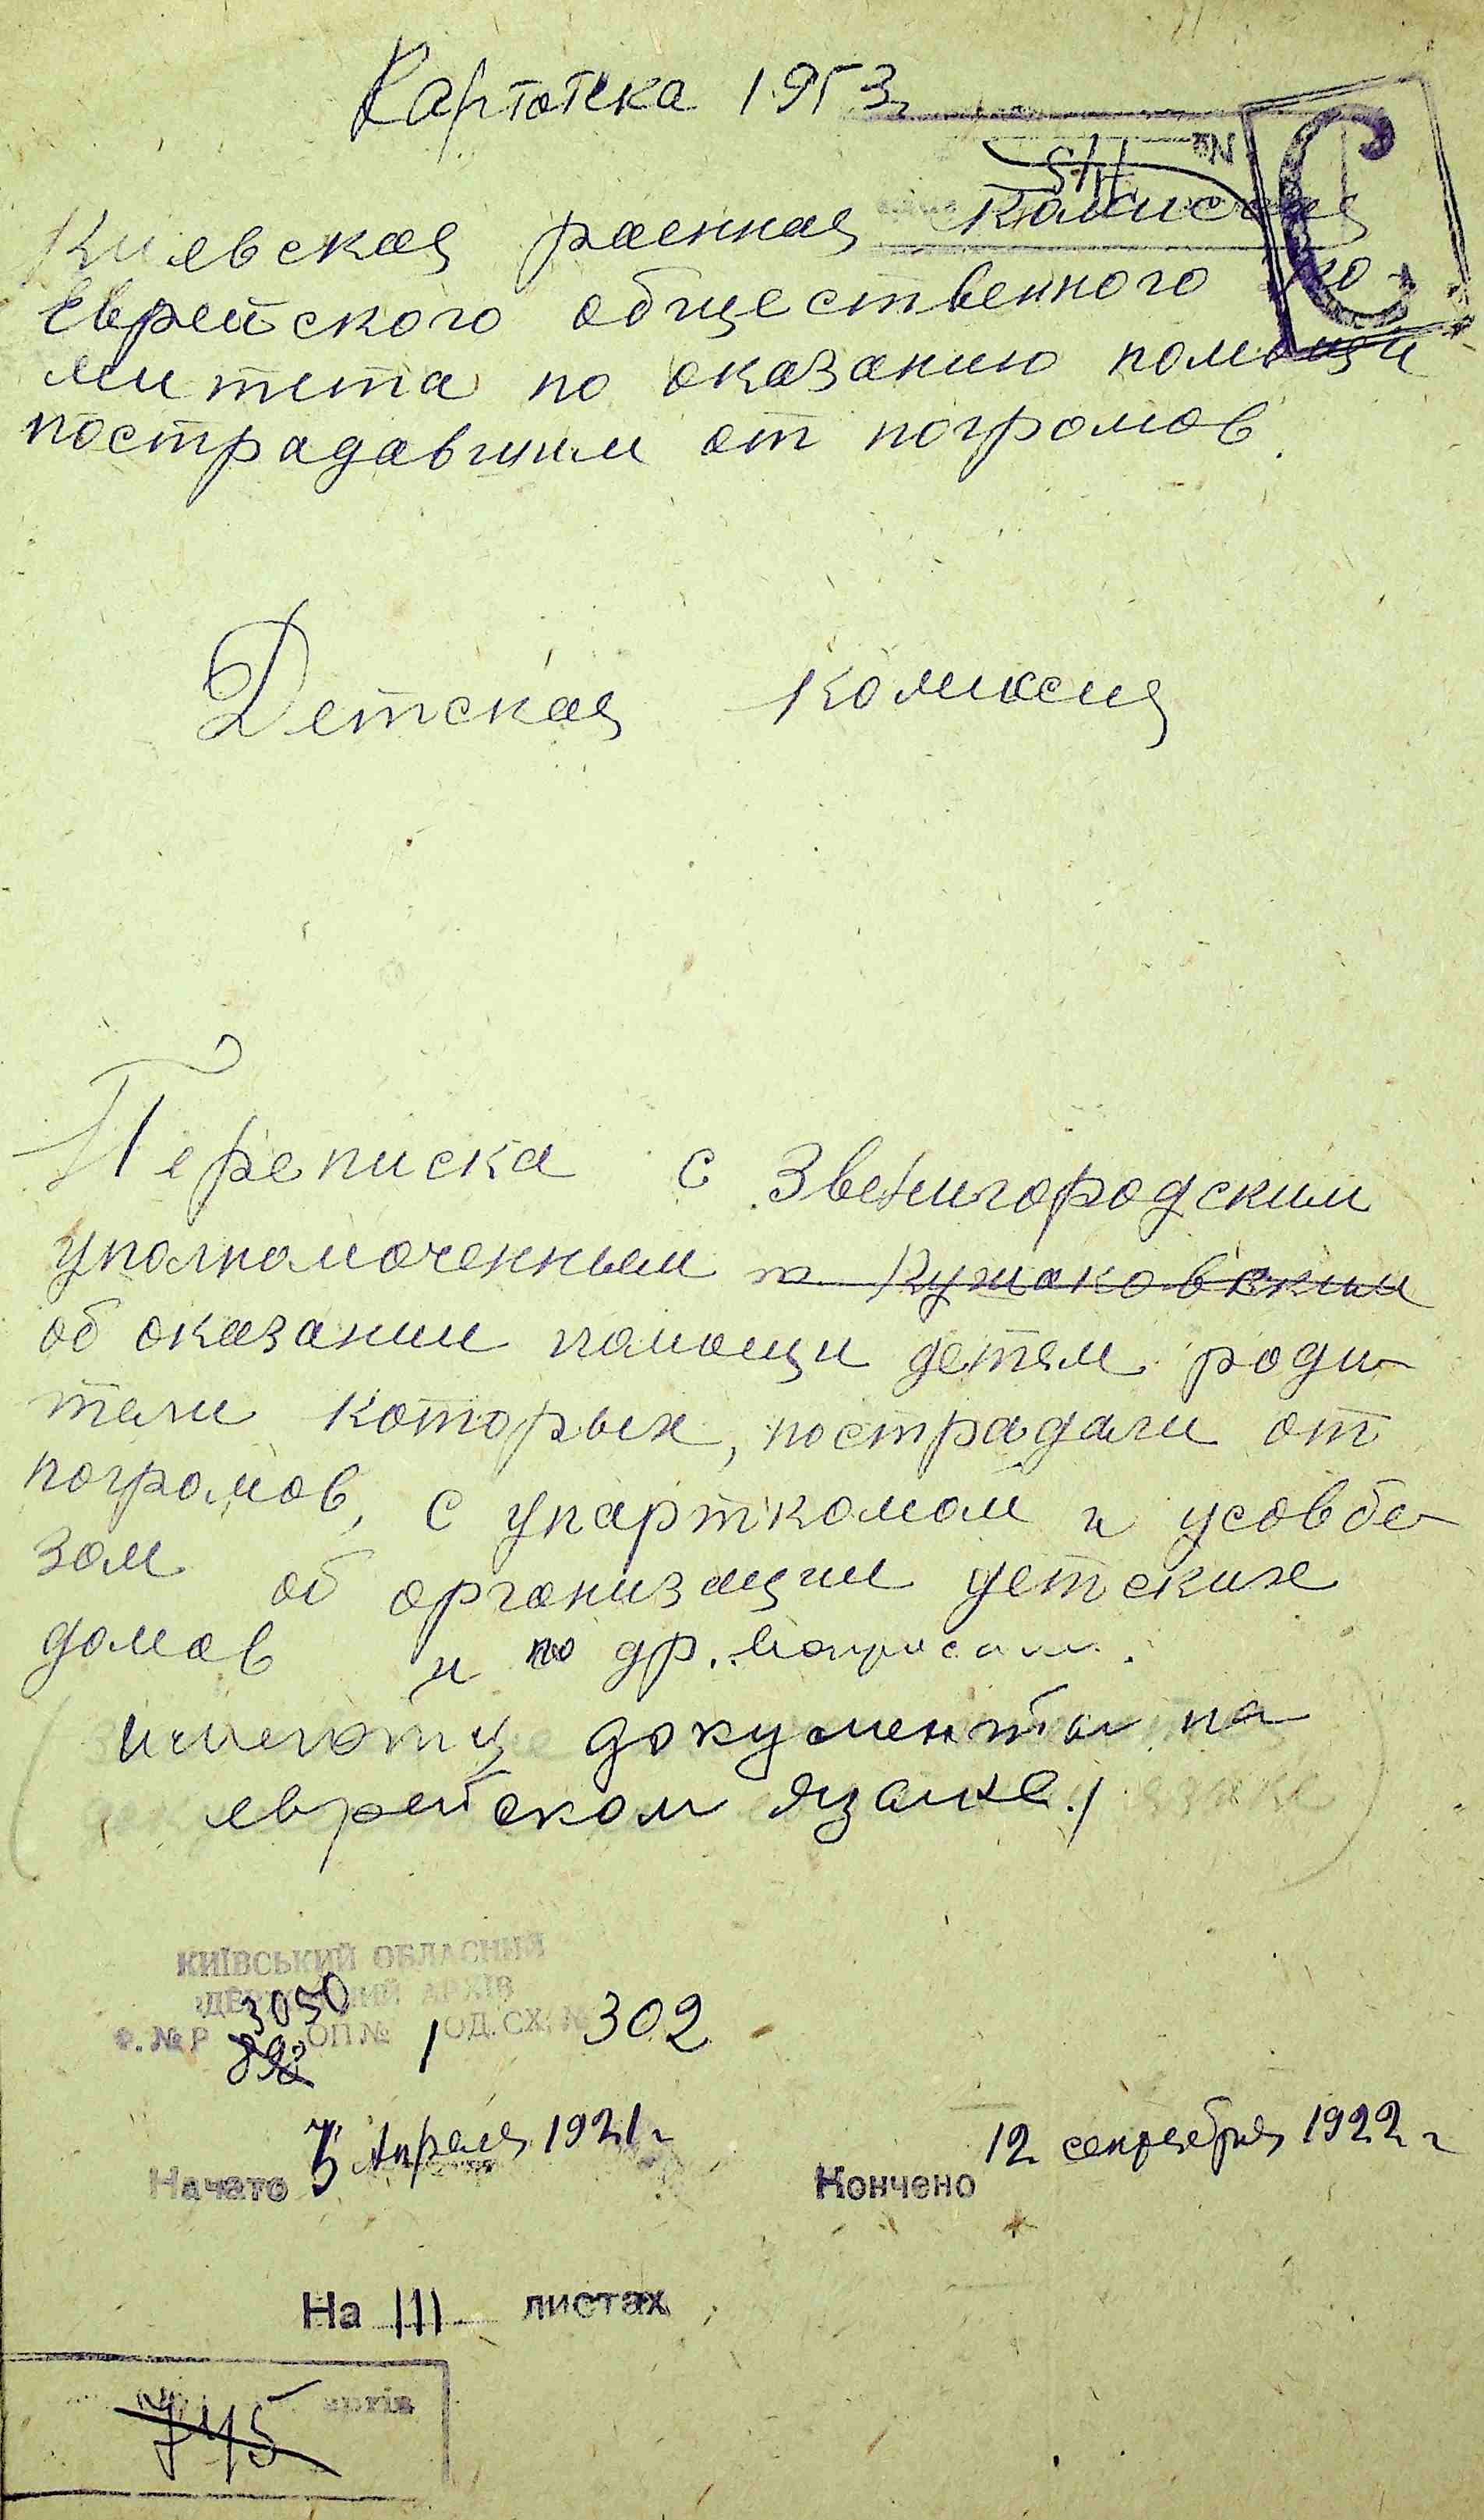 Картотека 1953 г
№
С
Киевская раенная комиссия
Еврейского общественного ко-
митета по оказанию помощи
пострадавшим от погромов.
Детская комиссия
Переписка с Звенигородским
уполномоченным т. Кулаковским
об оказании помощи детям роди-
тели которых, пострадали от
погромов, с упарткомом и усовбе-
зом об организации детских
домов и по др. вопросам.
имеются документы на
еврейском языке.)
КИЇВСЬКИЙ ОБЛАСНИЙ
ДЕРЖАВНИЙ АРХІВ
3050
Ф. № Р 898 ОП № 1 ОД. СХ. № 302
Начато Апреля 1921 г
Кончено 12 сентября 1922 г
На 111 листах
архів
745